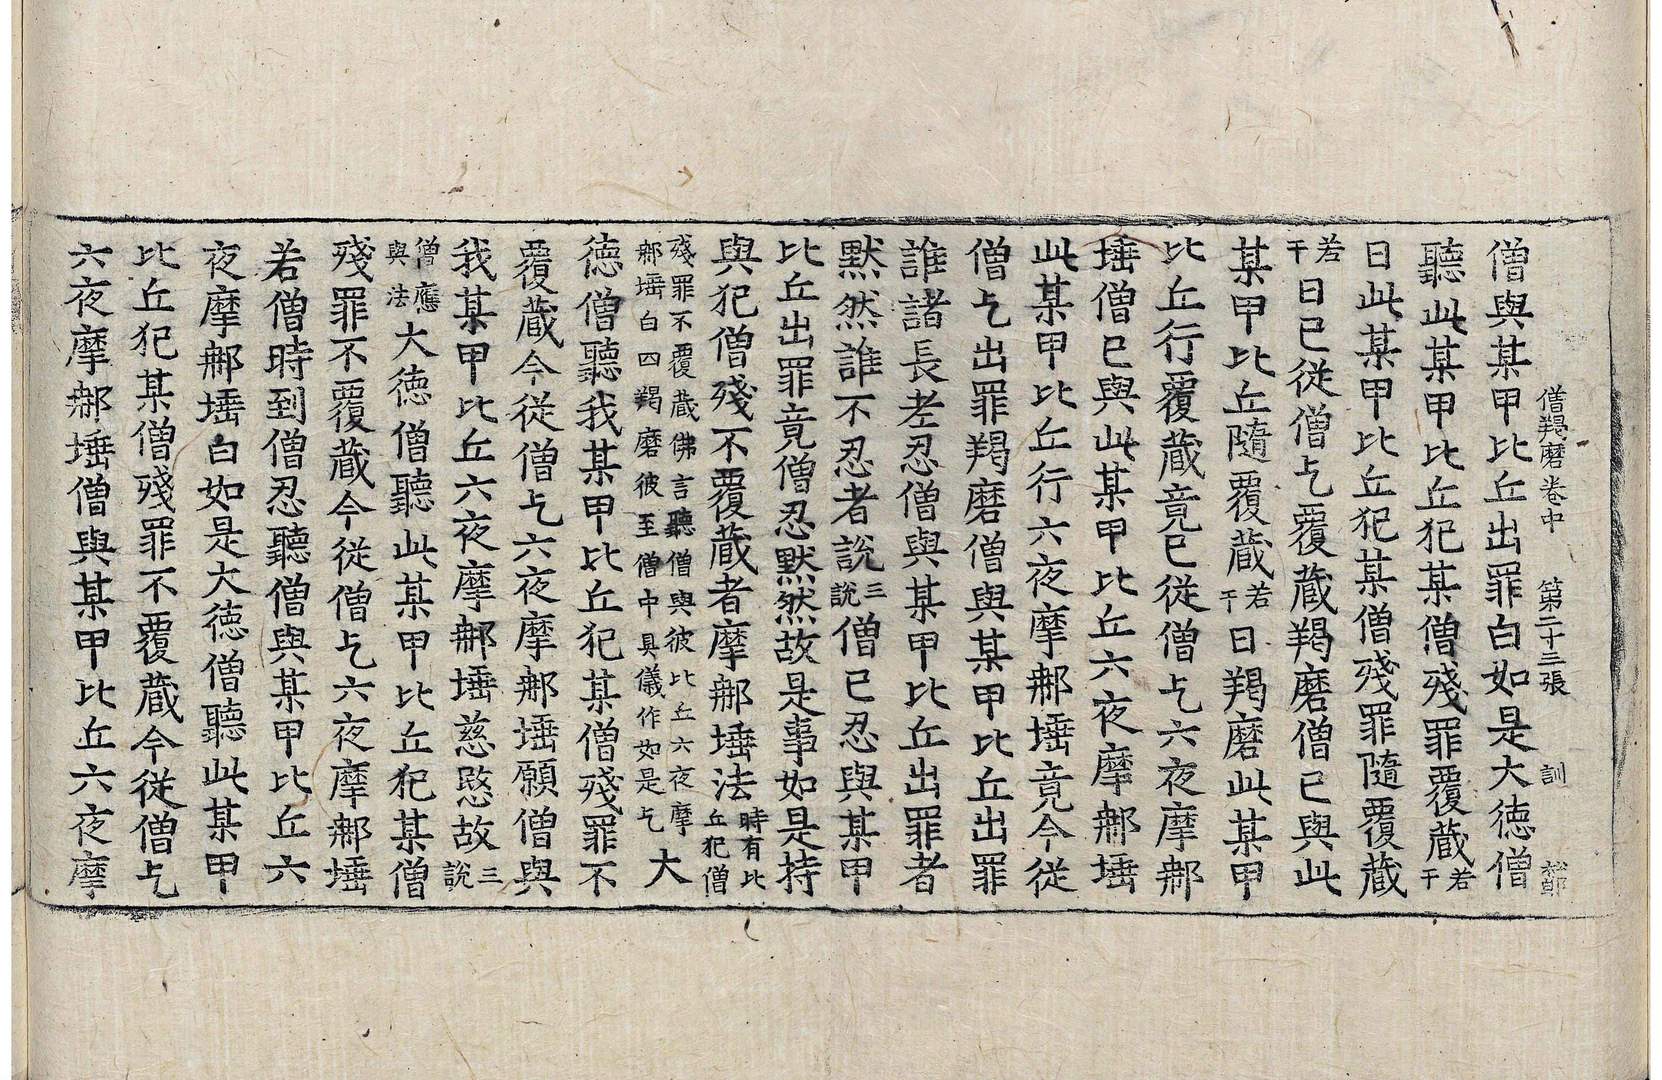 僧羯磨卷中 第二十三張 訓
僧與某甲比丘出罪白如是大德僧
聽此某甲比丘犯某僧殘罪覆藏若干
日此某甲比丘犯某僧殘罪隨覆藏
若干日已從僧乞覆藏羯磨僧已與此
某甲比丘隨覆藏若干日羯磨此某甲
比丘行覆藏竟已從僧乞六夜摩那
埵僧已與此某甲比丘六夜摩那埵
此某甲比丘行六夜摩那埵竟今從
僧乞出罪羯磨僧與某甲比丘出罪
誰諸長老忍僧與某甲比丘出罪者
默然誰不忍者說三說僧已忍與某甲
比丘出罪竟僧忍默然故是事如是持
與犯僧殘不覆藏者摩那埵法時有比丘犯僧
殘罪不覆藏佛言聽僧與彼比丘六夜摩那埵白四羯磨彼至僧中具儀作如是乞大
德僧聽我某甲比丘犯某僧殘罪不
覆藏今從僧乞六夜摩那埵願僧與
我某甲比丘六夜摩那埵慈愍故三說
僧應與法大德僧聽此某甲比丘犯某僧
殘罪不覆藏今從僧乞六夜摩那埵
若僧時到僧忍聽僧與某甲比丘六
夜摩那埵白如是大德僧聽此某甲
比丘犯某僧殘罪不覆藏今從僧乞
六夜摩那埵僧與某甲比丘六夜摩